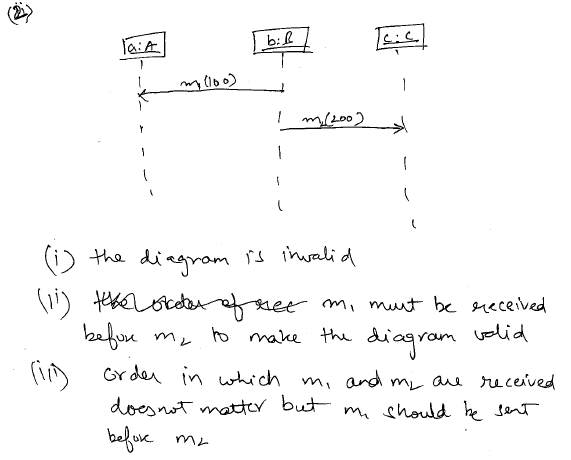 (2)
a:A b:B c:C
m1(100)
m2(200)
(i) the diagram is invalid
(ii) the order of rec m1 must be received
before m2 to make the diagram valid
(iii) order in which m1 and m2 are received
does not matter but m1 should be sent
before m2